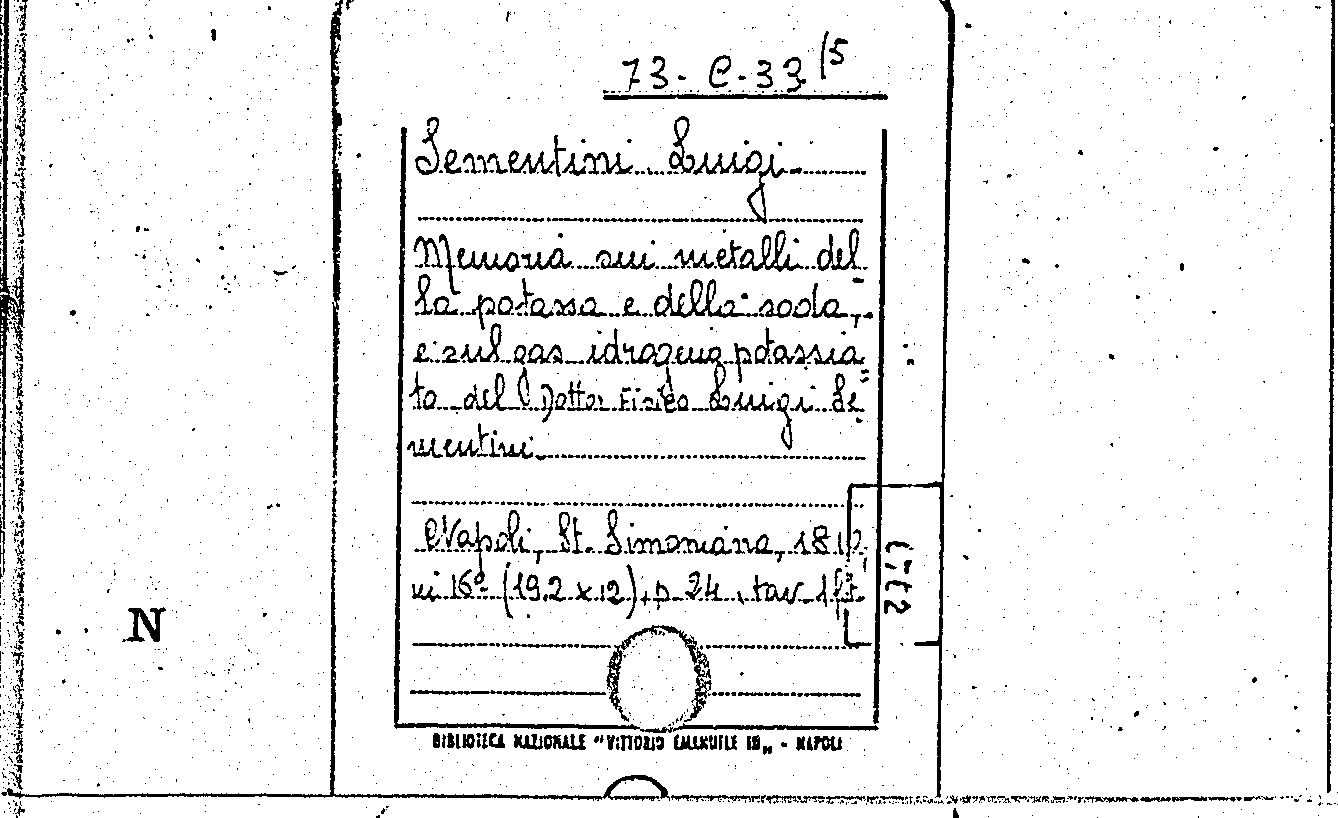 73-C-33/5
Sementini Luigi.
Memoria sui metalli del
la potassa e della soda,
e sul gas idrogeno potassia=
to del Dottor Fisico Luigi Se
mentini.
Napoli, St. Simoniana, 181
in 16º (19,2 x 12), p. 24, tav. 1 f.t.
N
BIBLIOTECA NAZIONALE "VITTORIO EMANUELE III„ - NAPOLI